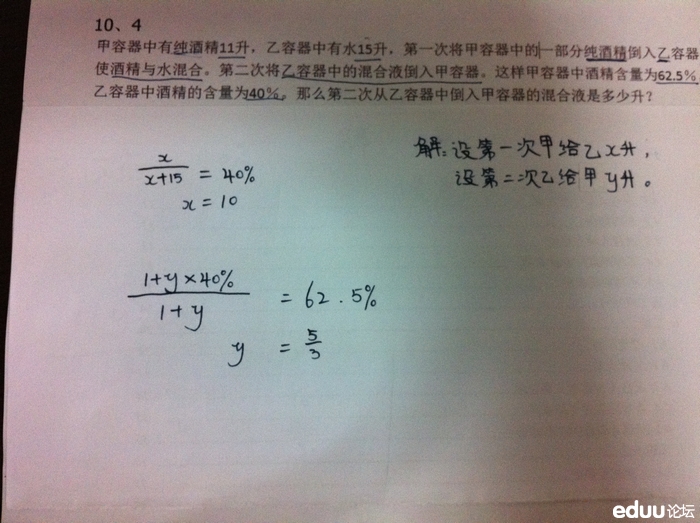 10、4
甲容器中有纯酒精11升，乙容器中有水15升，第一次将甲容器中的一部分纯酒精倒入乙容器
使酒精与水混合。第二次将乙容器中的混合液倒入甲容器。这样甲容器中酒精含量为62.5%
乙容器中酒精的含量为40%。那么第二次从乙容器中倒入甲容器的混合液是多少升？
解：设第一次甲给乙x升，
设第二次乙给甲y升。
x/(x+15) = 40%
x = 10
(1+y×40%)/(1+y) = 62.5%
y = 5/3
eduu论坛